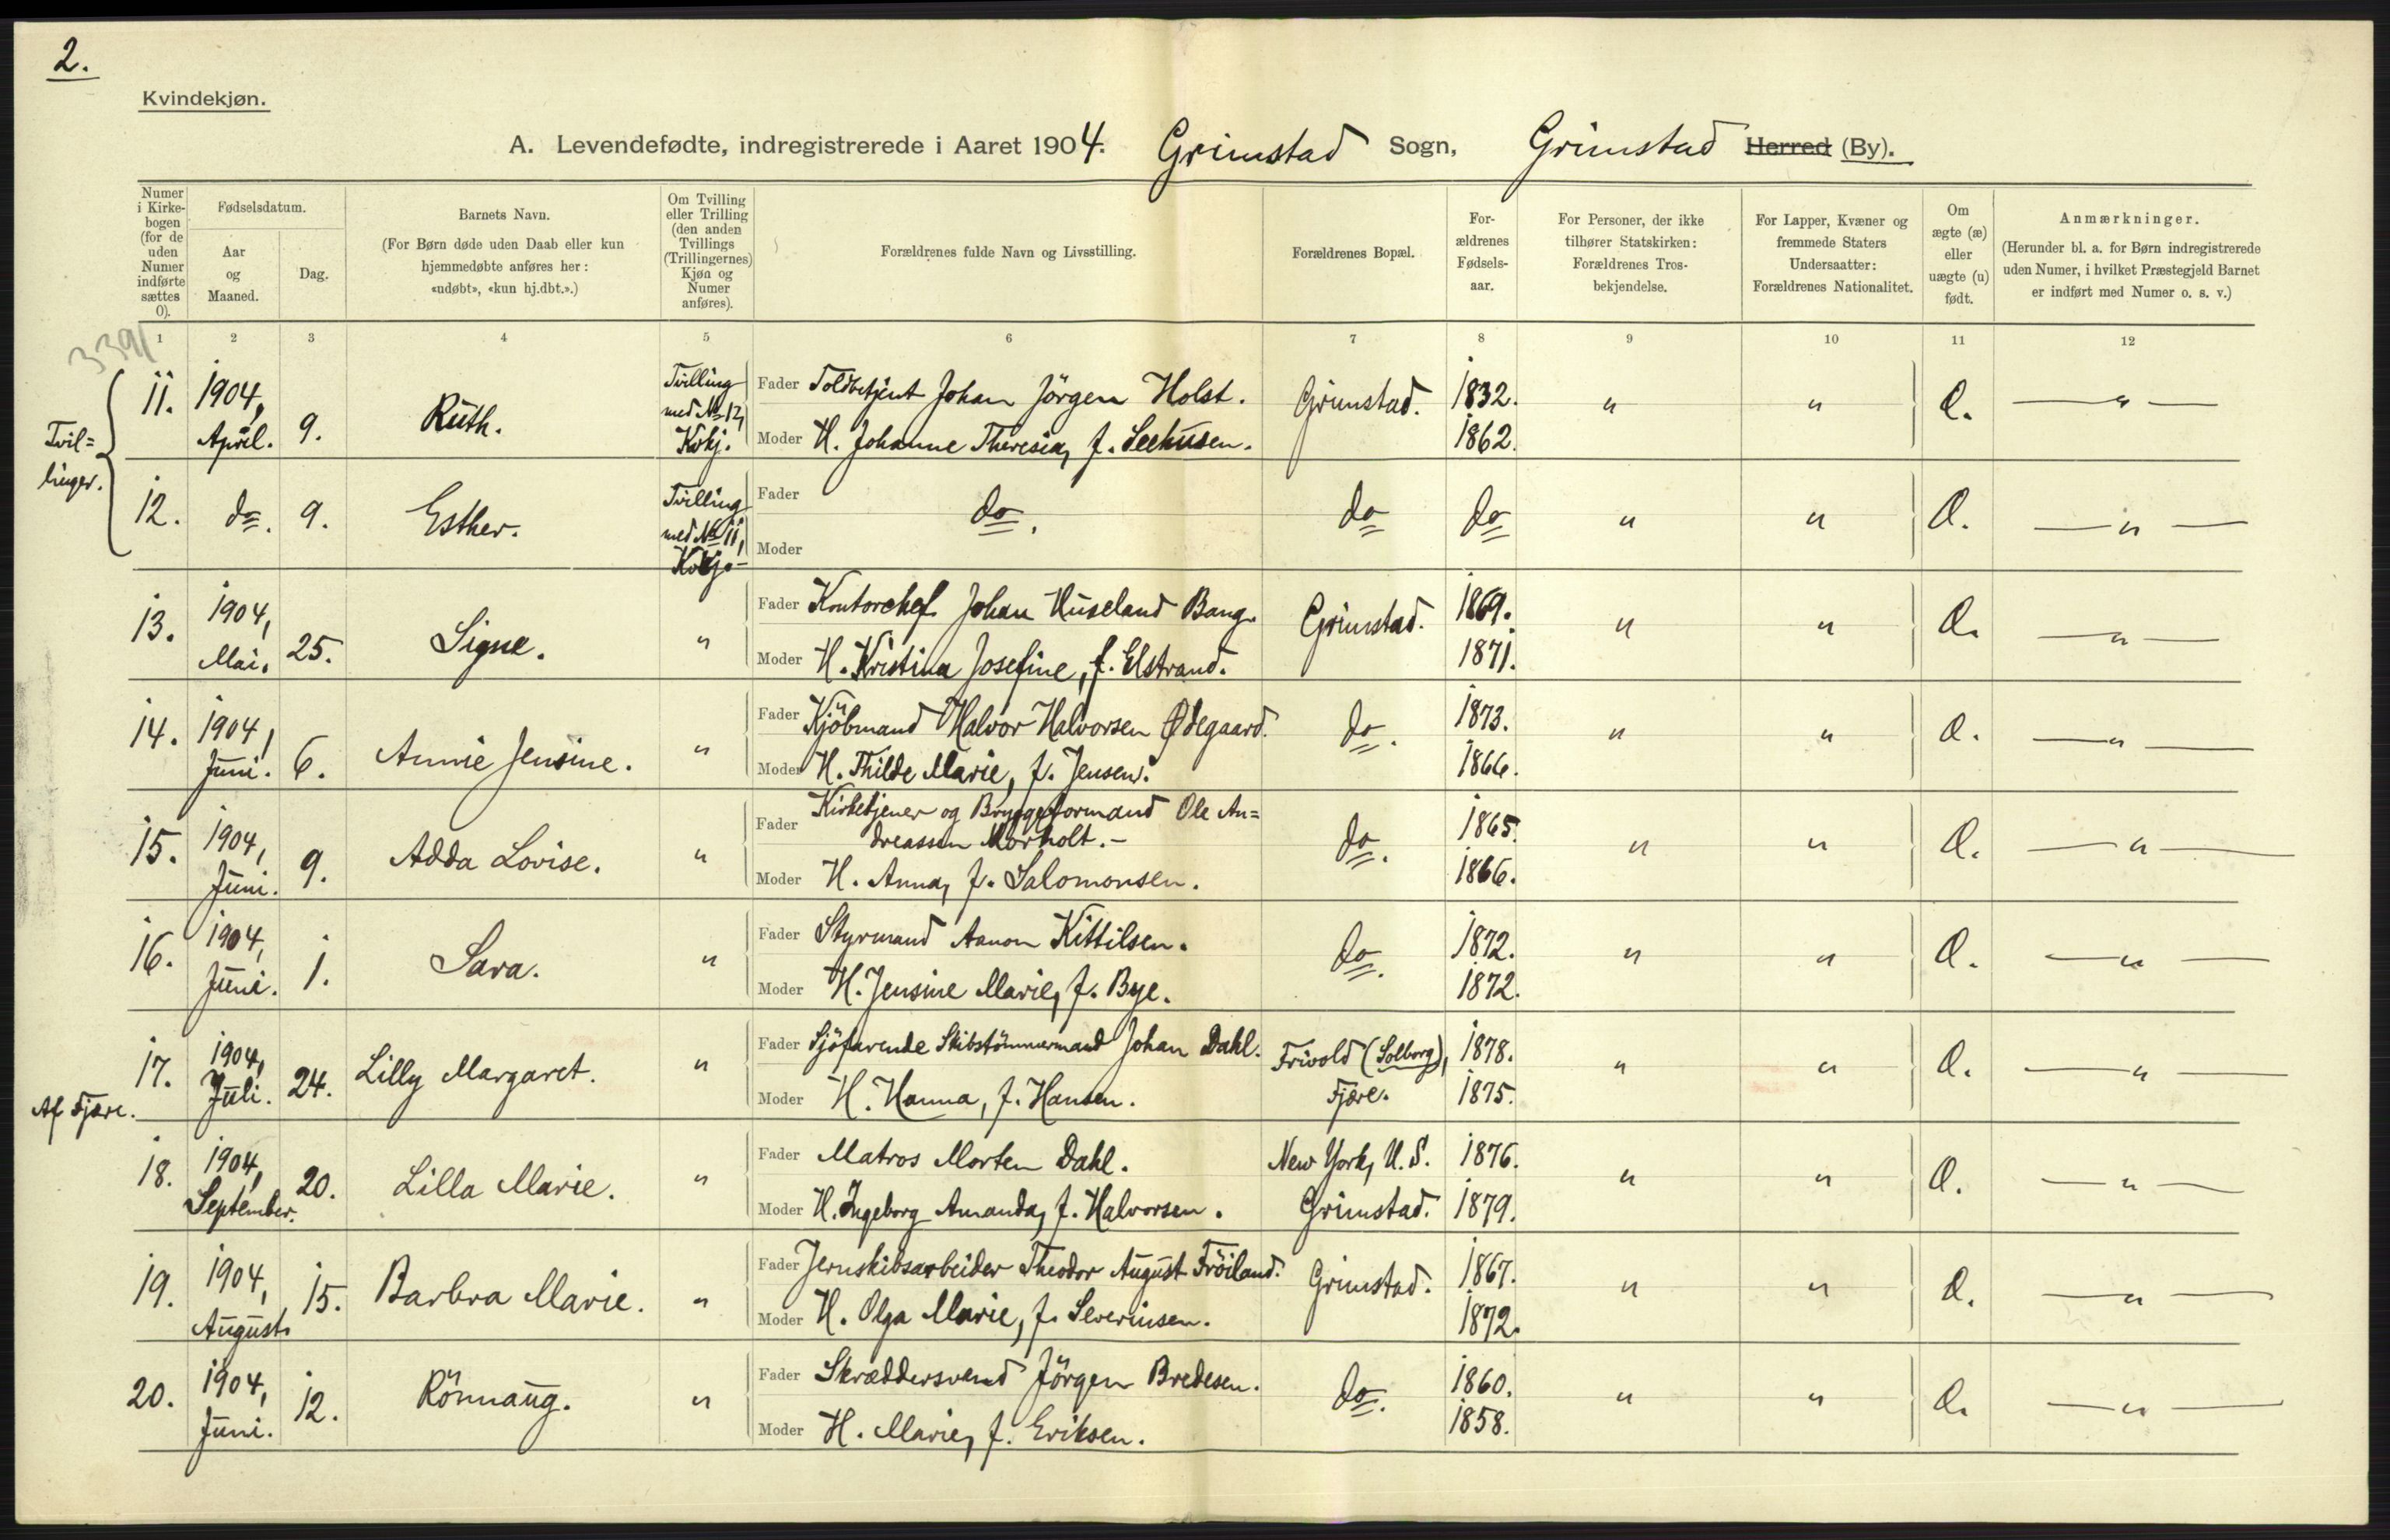 2.
Kvindekjøn.
A. Levendefødte, indregistrerede i Aaret 1904. Grimstad Sogn, Grimstad Herred (By).
Numer i Kirkebogen (for de uden Numer indførte sættes 0).
Fødselsdatum.
Aar og Maaned.
Dag.
Barnets Navn.
(For Børn døde uden Daab eller kun hjemmedøbte anføres her: «udøbt», «kun hj.dbt.».)
Om Tvilling eller Trilling (den anden Tvillings (Trillingernes) Kjøn og Numer anføres).
Forældrenes fulde Navn og Livsstilling.
Forældrenes Bopæl.
Forældrenes Fødselsaar.
For Personer, der ikke tilhører Statskirken: Forældrenes Trosbekjendelse.
For Lapper, Kvæner og fremmede Staters Undersaatter: Forældrenes Nationalitet.
Om ægte (æ) eller uægte (u) født.
Anmærkninger.
(Herunder bl. a. for Børn indregistrerede uden Numer, i hvilket Præstegjeld Barnet er indført med Numer o. s. v.)
1 2 3 4 5 6 7 8 9 10 11 12
3391
Tvil=
linger.
11. 1904, April. 9. Ruth. Tvilling med No 12, Kvkj. Fader Toldbetjent Johan Jörgen Holst. Grimstad. 1832. " " — " —
Moder H. Johanne Theresia, f. Seehusen. 1862.
12. do. 9. Esther. Tvilling med No 11, Kvkj.- Fader do. do do " " — " —
Moder
13. 1904, Mai. 25. Signe. " Fader Kontorchef Johan Huseland Bang. Grimstad. 1869. " " — " —
Moder H. Kristina Josefine, f. Elstrand. 1871.
14. 1904, Juni. 6. Annie Jensine. " Fader Kjöbmand Halvor Halvorsen Ødegaard. do. 1873. " " — " —
Moder H. Thilde Marie, f. Jensen. 1866.
15. 1904, Juni. 9. Adda Lovise. " Fader Kirketjener og Bryggeformand Ole An=
dreassen Morholt.- do. 1865. " " — " —
Moder H. Anna, f. Salomonsen. 1866.
16. 1904, Juni. 1. Sara. " Fader Styrmand Aanon Kittilsen. do. 1872. " " — " —
Moder H. Jensine Marie, f. Bye. 1872.
17. 1904, Juli. 24. Lilly Margaret. " Fader Sjöfarende Skibstömmermand Johan Dahl. Frivold (Solborg), 1878. " " — " —
Af Fjære.
Moder H. Hanna, f. Hansen. Fjære. 1875.
18. 1904, September. 20. Lilla Marie. " Fader Matros Morten Dahl. New York, U.S. 1876. " " — " —
Moder H. Ingeborg Amanda, f. Halvorsen. Grimstad. 1879.
19. 1904, August. 15. Barbra Marie. " Fader Jernskibsarbeider Theodor August Fröiland. Grimstad. 1867. " " — " —
Moder H. Olga Marie, f. Severinsen. 1872.
20. 1904, Juni. 12. Rönnaug. " Fader Skræddersvend Jörgen Bredesen. do. 1860. " " — " —
Moder H. Marie, f. Eriksen. 1858.